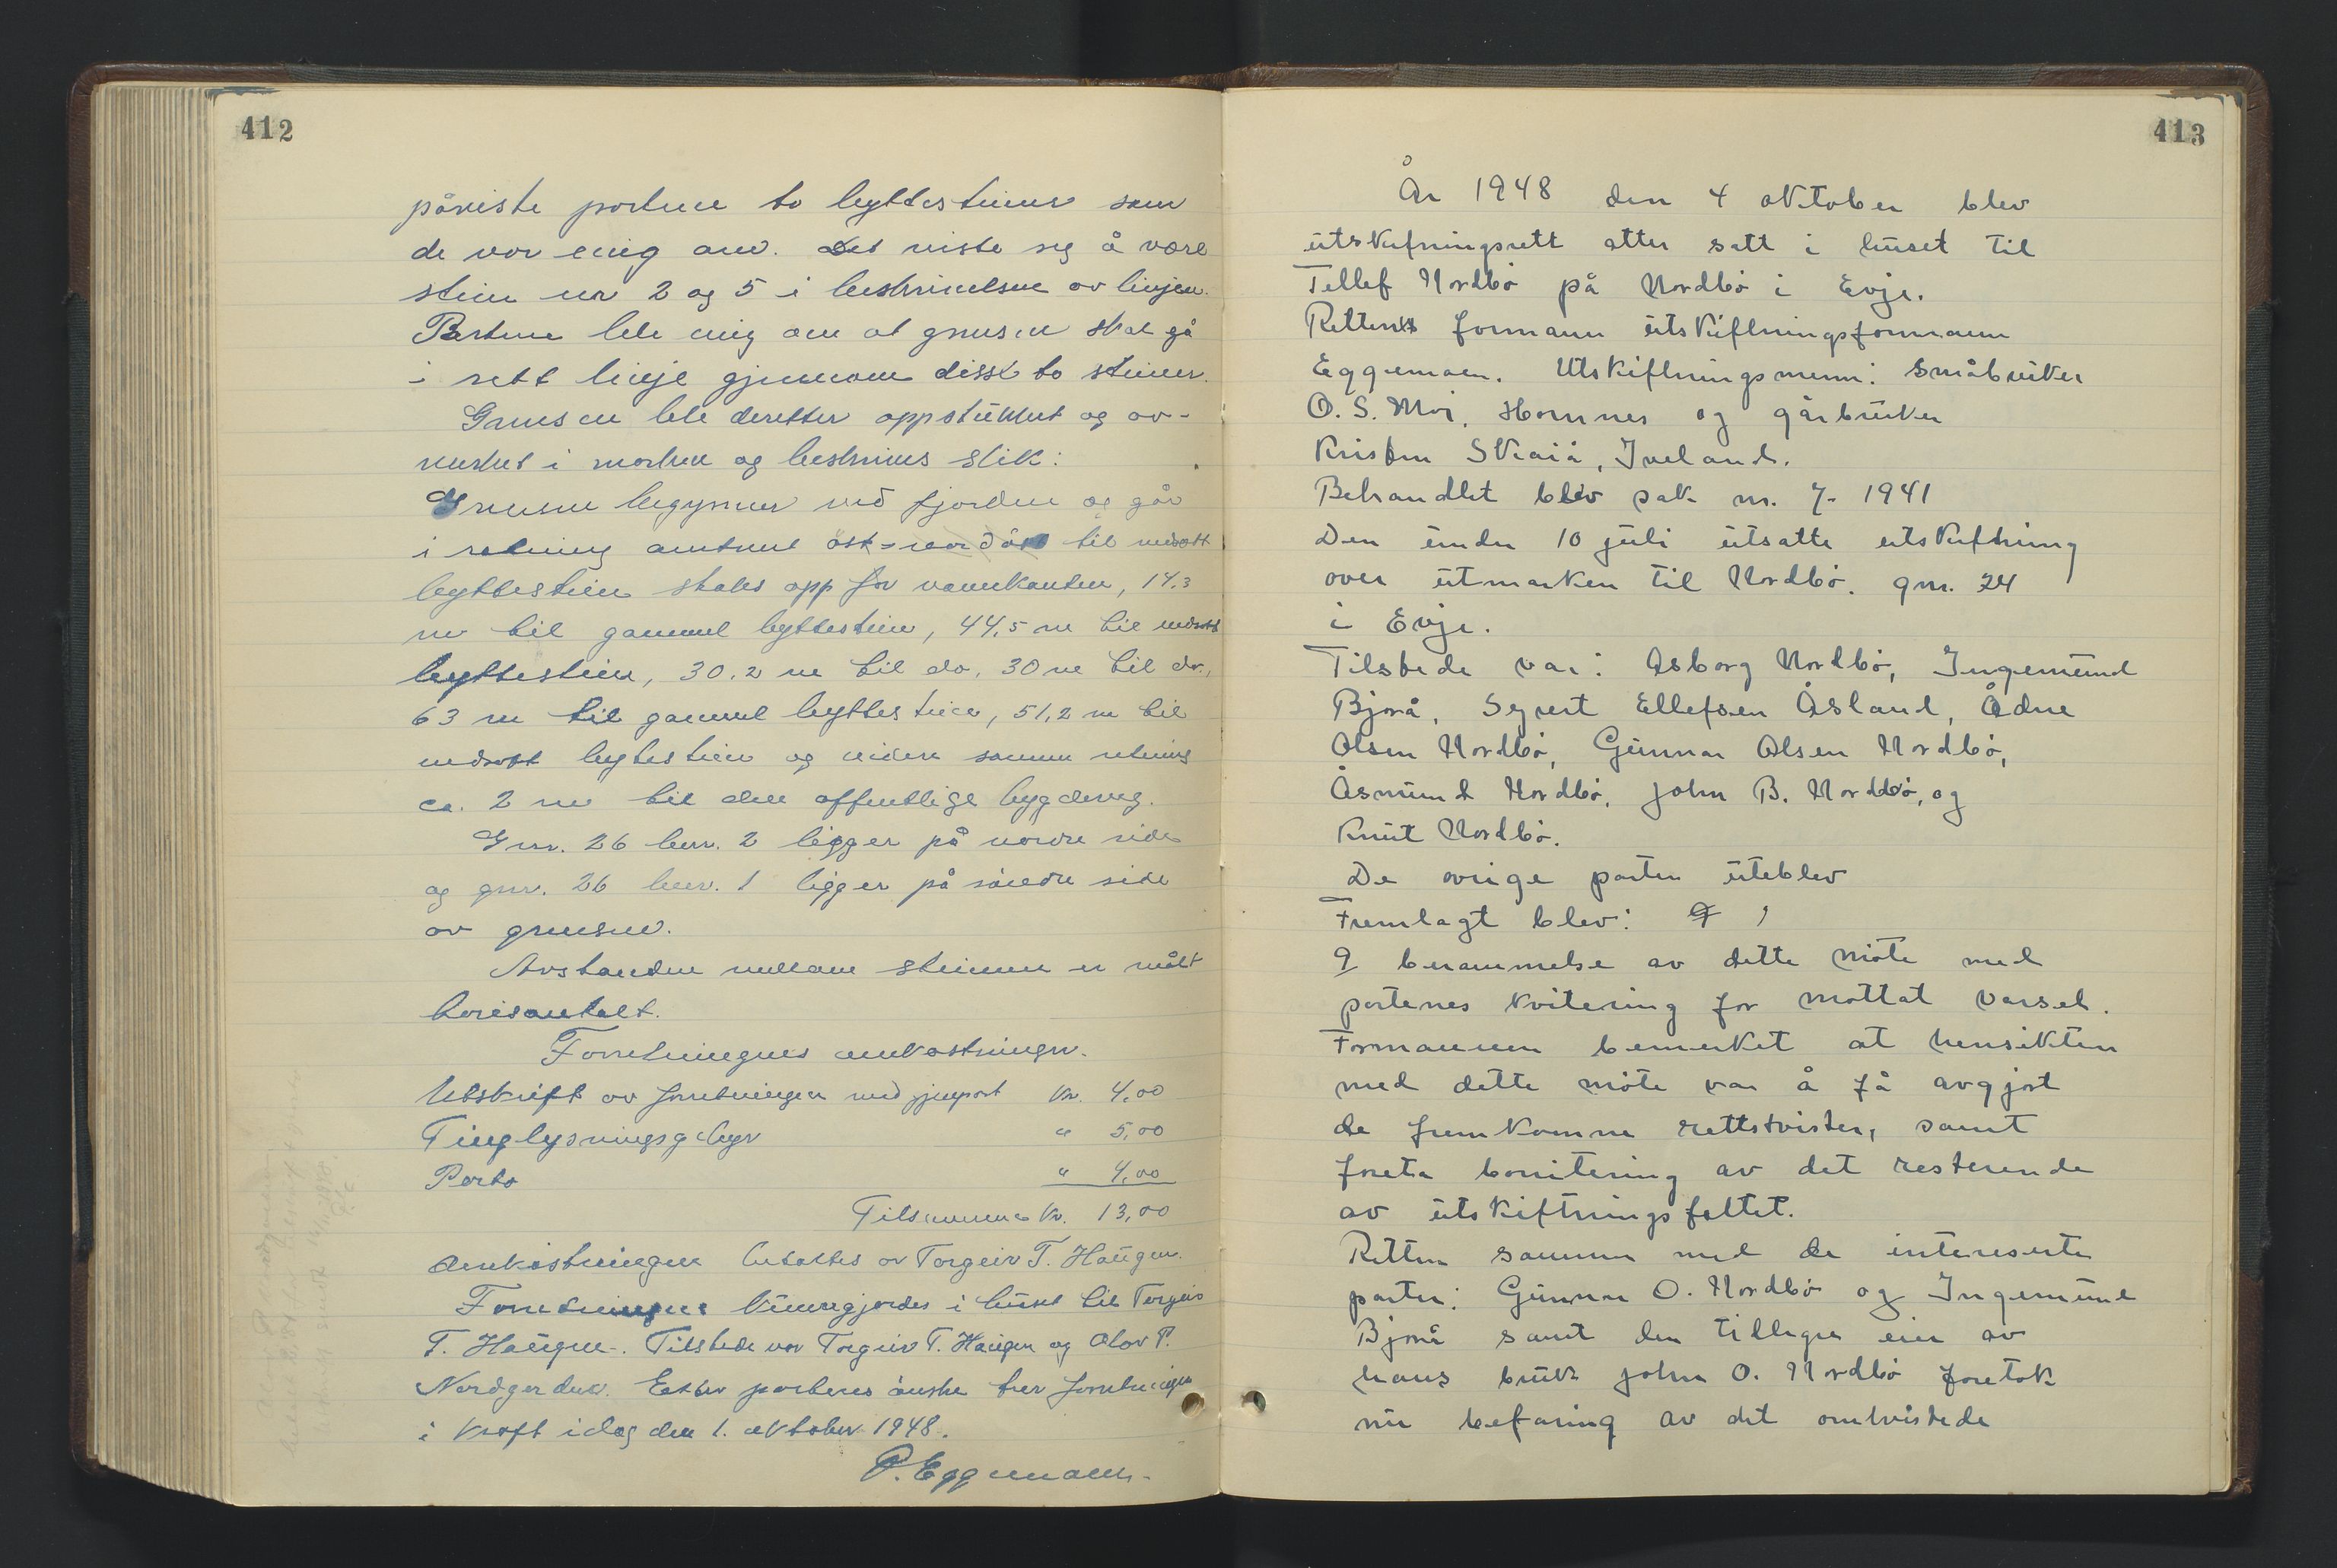 412
påviste partene to byttesteiner som
de var enig om. Det viste seg å være
stein nr 2 og 5 i beskrivelsen av linjen.
Partene ble enig om at grensen skal gå
i rett linje gjennom disse to steiner.
Grensen ble deretter oppstukket og av-
merket i marken og beskrives slik:
Grensen begynner ved fjorden og går
i retning omtrent öst-nordöst til nedsatt
byttestein straks opp for vannkanten, 14.3
m til gammel byttestein, 44,5 m til nedsatt
byttestein, 30.2 m til do, 30 m til do.,
63 m til gammel byttestein, 51,2 m til
nedsatt byttestein og videre samme retning
ca. 2 m til den offentlige bygdeveg.
Gnr. 26 bnr. 2 ligger på nordre side
og gnr. 26 bnr. 1 ligger på söndre side
av grensen.
Avstanden mellom steinene er målt
horisontalt.
Forretningens omkostninger.
Utskrift av forretningen med gjenpart Kr. 4,00
Tinglysningsgebyr " 5,00
Porto " 4,00
Tilsammen Kr. 13,00
Omkostningene betaltes av Torgeir T. Haugen.
Forretningen kunngjordes i huset til Torgeir
T. Haugen. Tilstede var Torgeir T. Haugen og Olov P.
Nordgarden. Etter partenes önske trer forretningen
i kraft idag den 1. oktober 1948.
P. Eggemoen.
413
År 1948 den 4 oktober blev
utskiftningsrett atter satt i huset til
Tellef Nordbö på Nordbö i Evje.
Rettens formann utskiftningsformann
Eggemoen. Utskiftningsmenn: Småbruker
O. S. Moi, Hornnes og gårbruker
Kristen Skaiå, Iveland.
Behandlet blev sak nr. 7- 1941
Den under 10 juli utsatte utskiftning
over utmarken til Nordbö. gnr. 24
i Evje.
Tilstede var: Asborg Nordbö, Ingemund
Bjorå, Sejvert Ellefsen Åsland, Ådne
Olsen Nordbö, Gunnar Olsen Nordbö,
Åsmund Nordbö, John B. Nordbö, og
Knut Nordbö.
De övrige parter uteblev
Fremlagt blev:
9 berammelse av dette möte med
partenes kvitering for mottat varsel.
Formannen bemerket at hensikten
med dette möte var å få avgjort
de fremkomne rettstvister, samt
foreta bonitering av det resterende
av utskiftningsfeltet.
Retten sammen med de interesserte
parter: Gunnar O. Nordbö og Ingemund
Bjorå samt den tidligere eier av
hans bruk John O. Nordbö foretok
nu befaring av det omtvistede